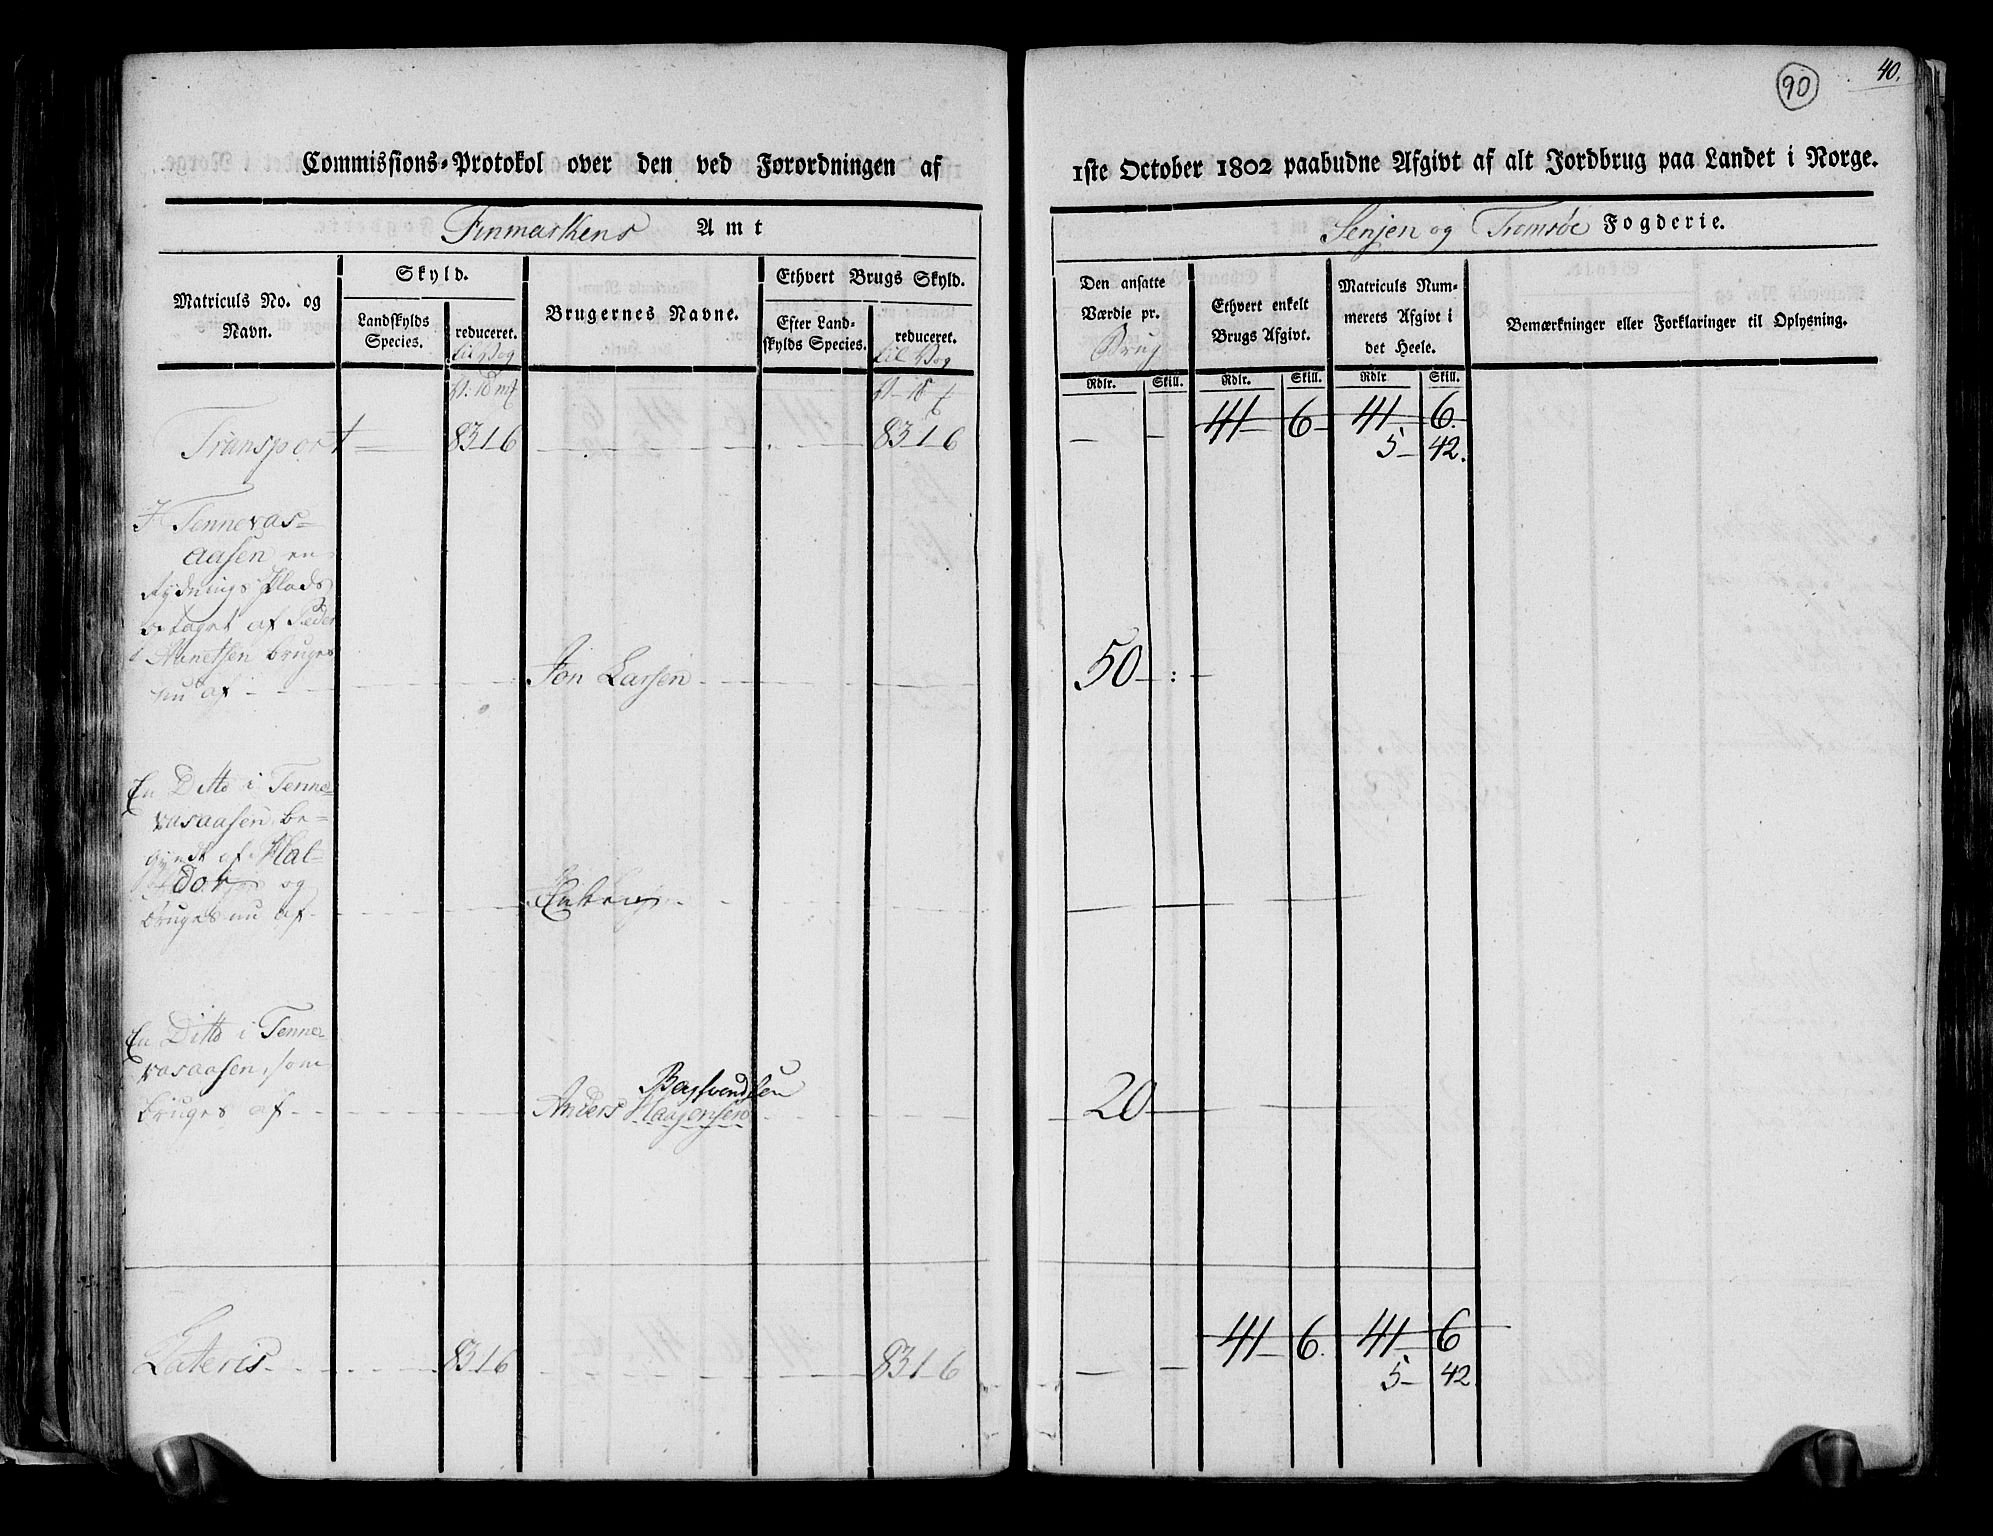 90
40.
Commissions-Protokol over den ved Forordningen af
1ste October 1802 paabudne Afgivt af alt Jordbrug paa Landet i Norge.
Finmarkens Amt
Senjen og Tromsöe Fogderie.
Matriculs No. og Navn.
Skyld.
Landskylds Species.
reduceret.
til Vog
Brugernes Navne.
Ethvert Brugs Skyld.
Efter Landskylds Species.
reduceret.
til Vog
Den ansatte Værdie pr.
Brug
Rdlr. Skill.
Ethvert enkelt Brugs Afgivt.
Rdlr. Skill.
Matriculs Nummerets Afgivt i det Heele.
Rdlr Skill.
Bemærkninger eller Forklaringer til Oplysning.
Transport 83 1 6 83-1-6 41 6 41 6
5 42.
I Tennevas-
aasen en
Rydnings Plads
af Peder
bruges
nu af Jon Larsen 50
En Ditto i Tenne-
vasaasen, be-
gyndt af Hal-
dor og
bruges nu af
En Ditto i Tenne-
vasaasen, som
Bagsvendsen
bruges af Anders Haagensen 20
Lateris 83 1 6 83-1-6 41 6. 41 6
5 42